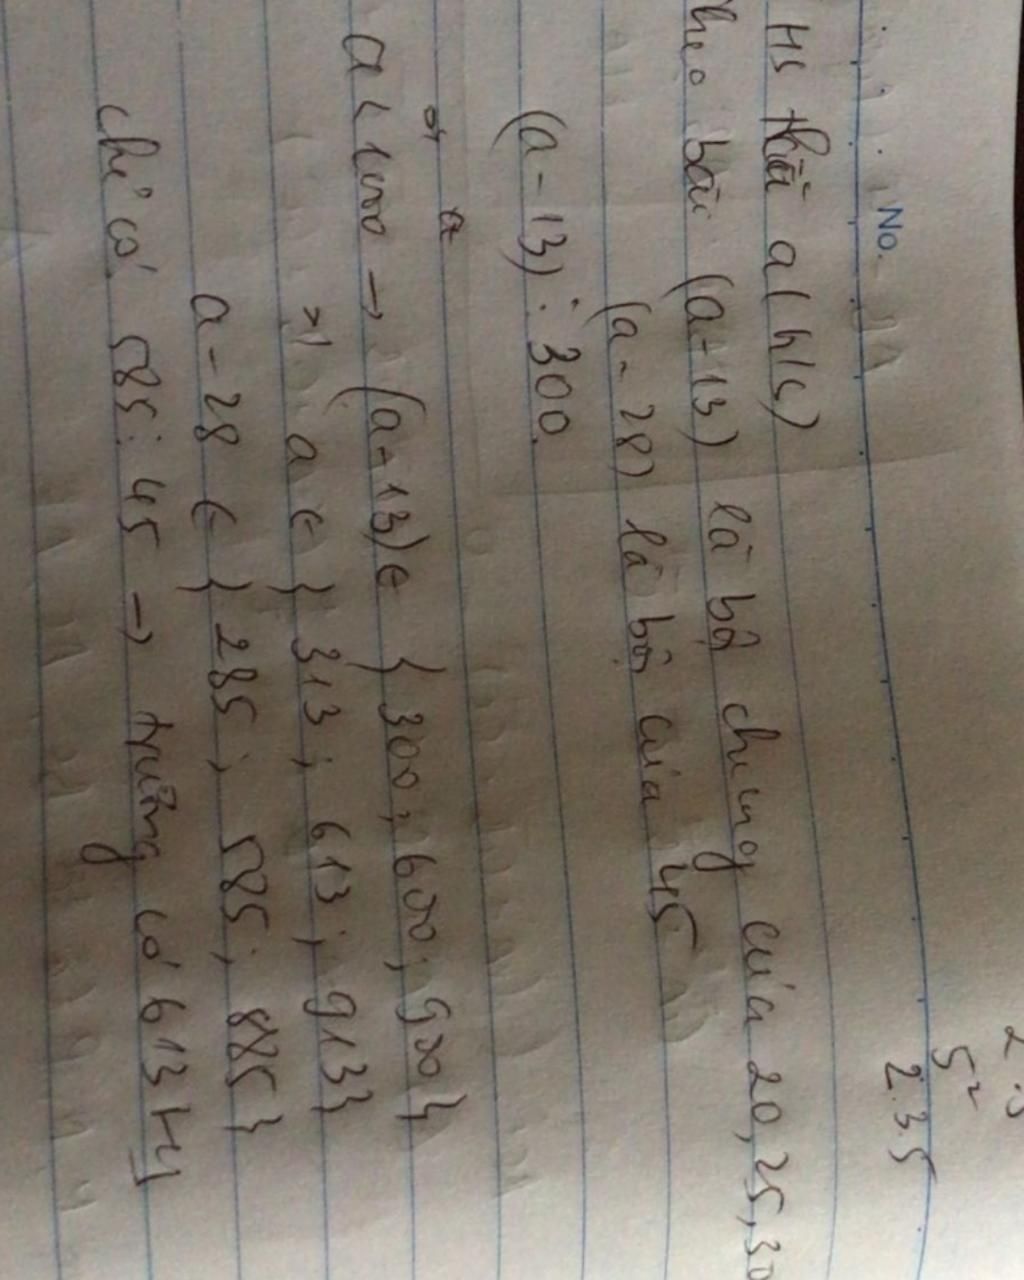 No.
2.3.5
5²
Hs
a (h/s)
bài (a-13) là bội chung của 20, 25, 30
(a-28) là bội của 45
(a-13) ⋮ 300.
a
a < 1000 → (a-13) ∈ { 300; 600; 900 }
a ∈ { 313; 613; 913 }
a-28 ∈ { 285; 585; 885 }
chỉ có 585 ⋮ 45 → trường có 613 Hs